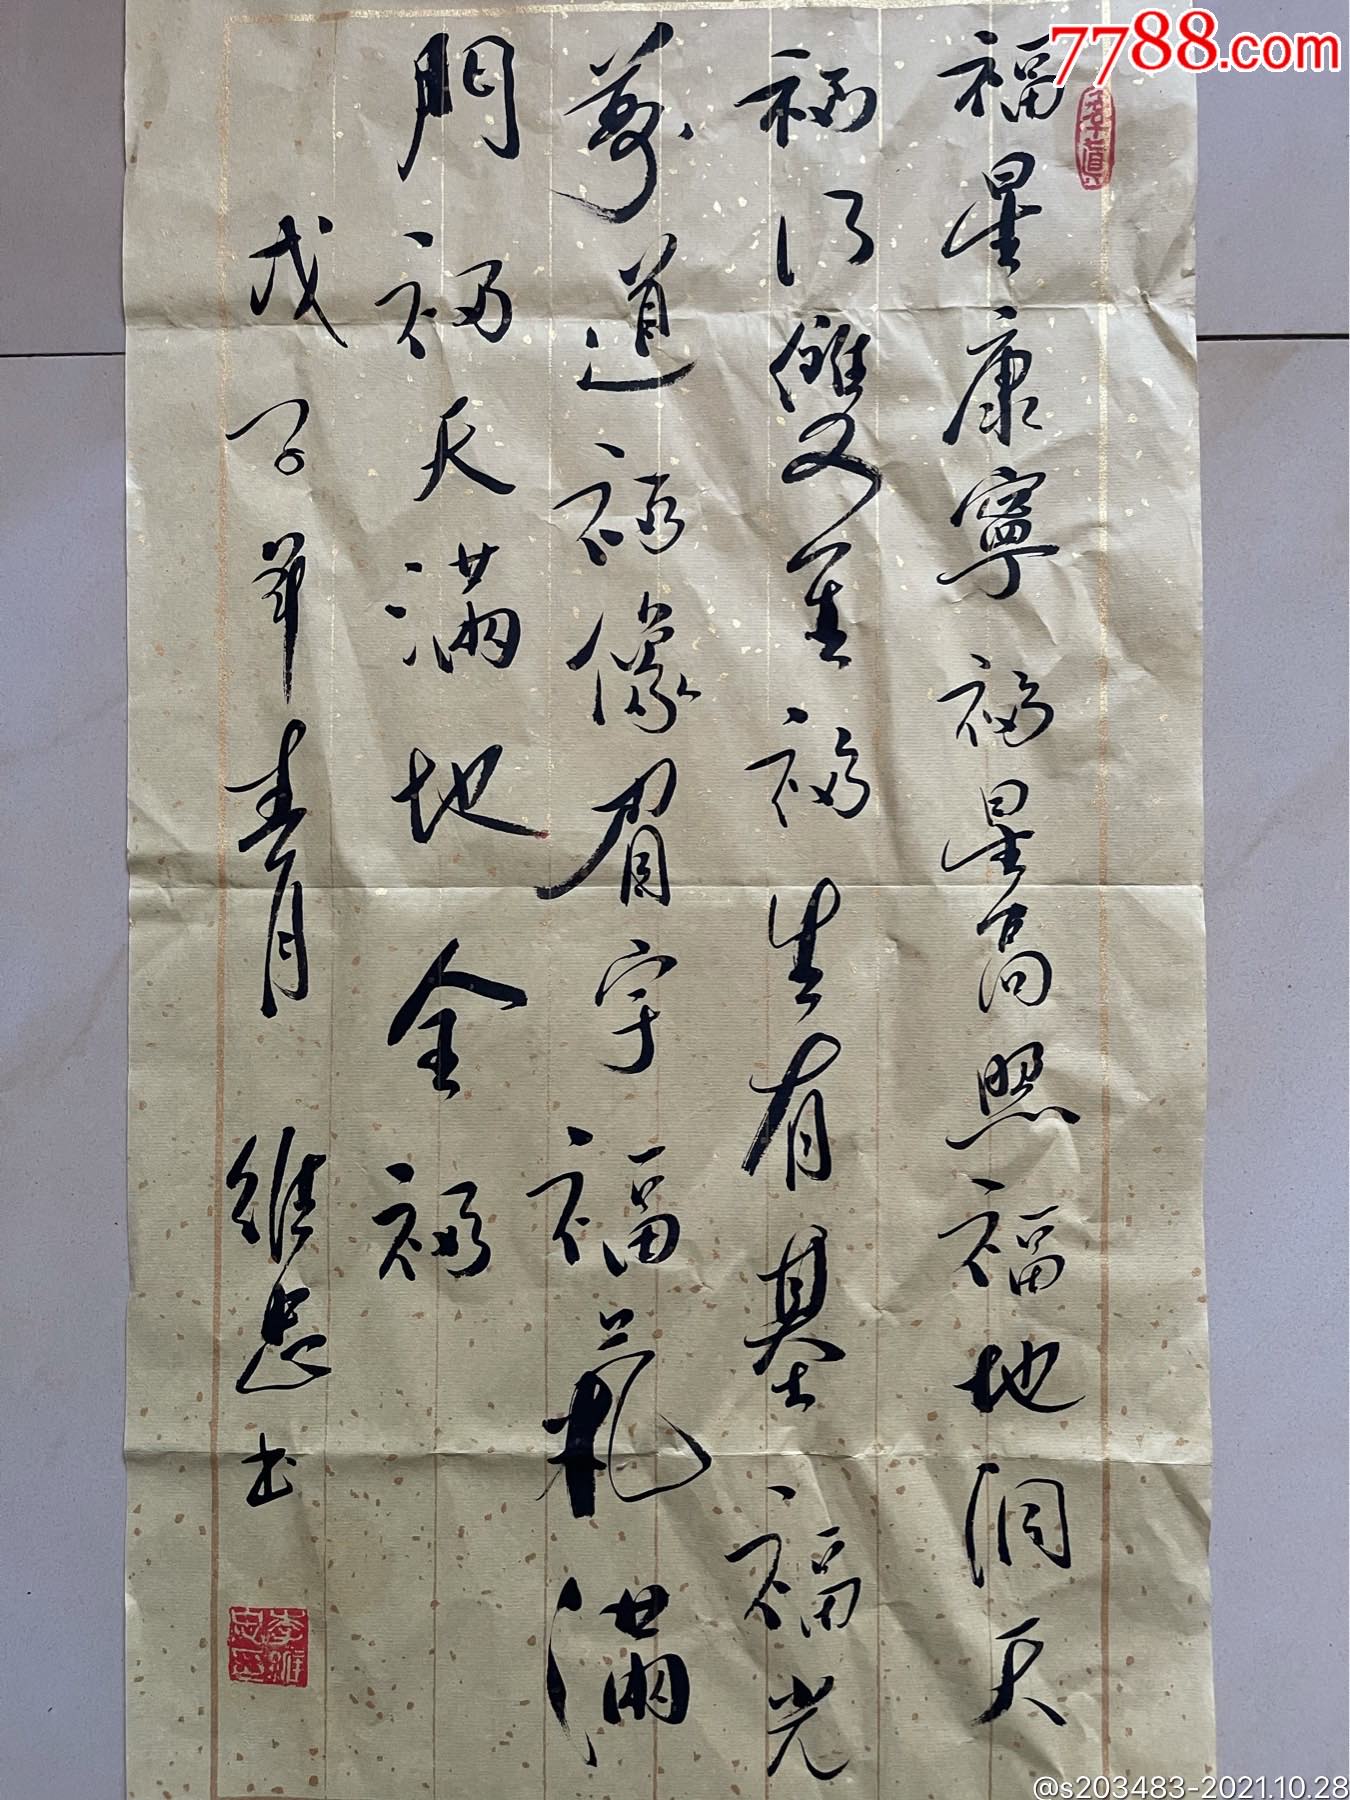 7788.com
福星康寧福星高照福地洞天
福以雙至福生有基福光
萬道福像眉宇福禮滿
門福天滿地全福
戊子年春月 維忠书
李維忠印
@s203483-2021.10.28